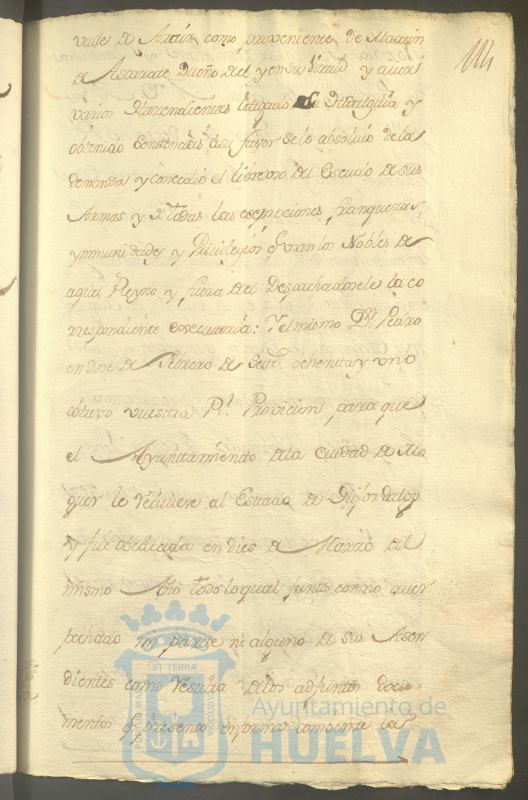 114
valle de Araiz como proveniente de Martin
de Ascarate Dueño del y en su virtud y aver
varios Ascendientes litigado su Hidalguia y
obtenido Sentencias a su favor se le absolvio de la
demanda y concedio el libre uso del Escudo de sus
Armas y de todas las esempciones, franquezas,
ynmunidades y Privilegios q.e gozan los Nobles de
aquel Reyno y fuera del Despachadosele la co
rrespondiente executoria: Y el mismo Dn. Pedro
en doze de Febrero de Sette. ochenta y uno
obtuvo vuestra Rl. Provicion para que
el Ayuntamiento de la ciudad de Mo
guer le reciviere al Esttado de Hijos dalgo
y fue obedecida en dies de Marzo del
mismo Año todo lo qual junto con no aver
pechado mi parte ni alguno de sus Asen
dientes como resulta de los adjuntos docu
mentos q.e presento en forma consiente la
ET TERRÆ
Ayuntamiento de
HUELVA